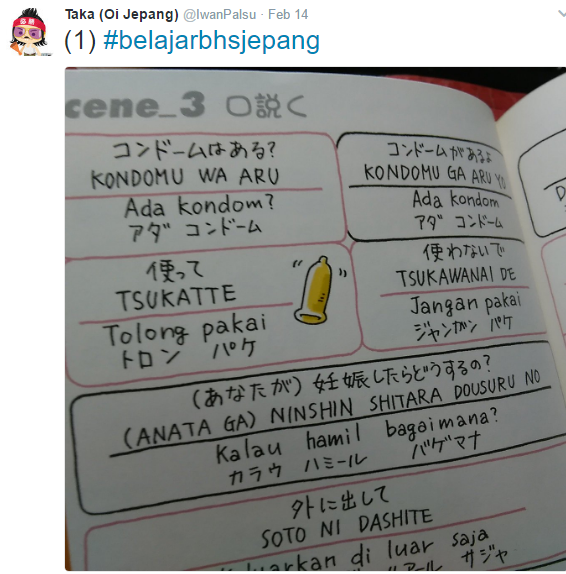 Taka (Oi Jepang) @IwanPalsu · Feb 14
(1) #belajarbhsjepang
必勝
cene_3 口説く
コンドームはある?
KONDOMU WA ARU
Ada kondom?
アダ コンドーム
コンドームがあるよ
KONDOMU GA ARU YO
Ada kondom
アダ コンドーム
使って
TSUKATTE
Tolong pakai
トロン パケ
使わないで
TSUKAWANAI DE
Jangan pakai
ジャンガン パケ
(あなたが) 妊娠したらどうするの?
(ANATA GA) NINSHIN SHITARA DOUSURU NO
Kalau hamil bagaimana?
カラウ ハミール バゲマナ
外に出して
SOTO NI DASHITE
luarkan di luar saja
サジャ